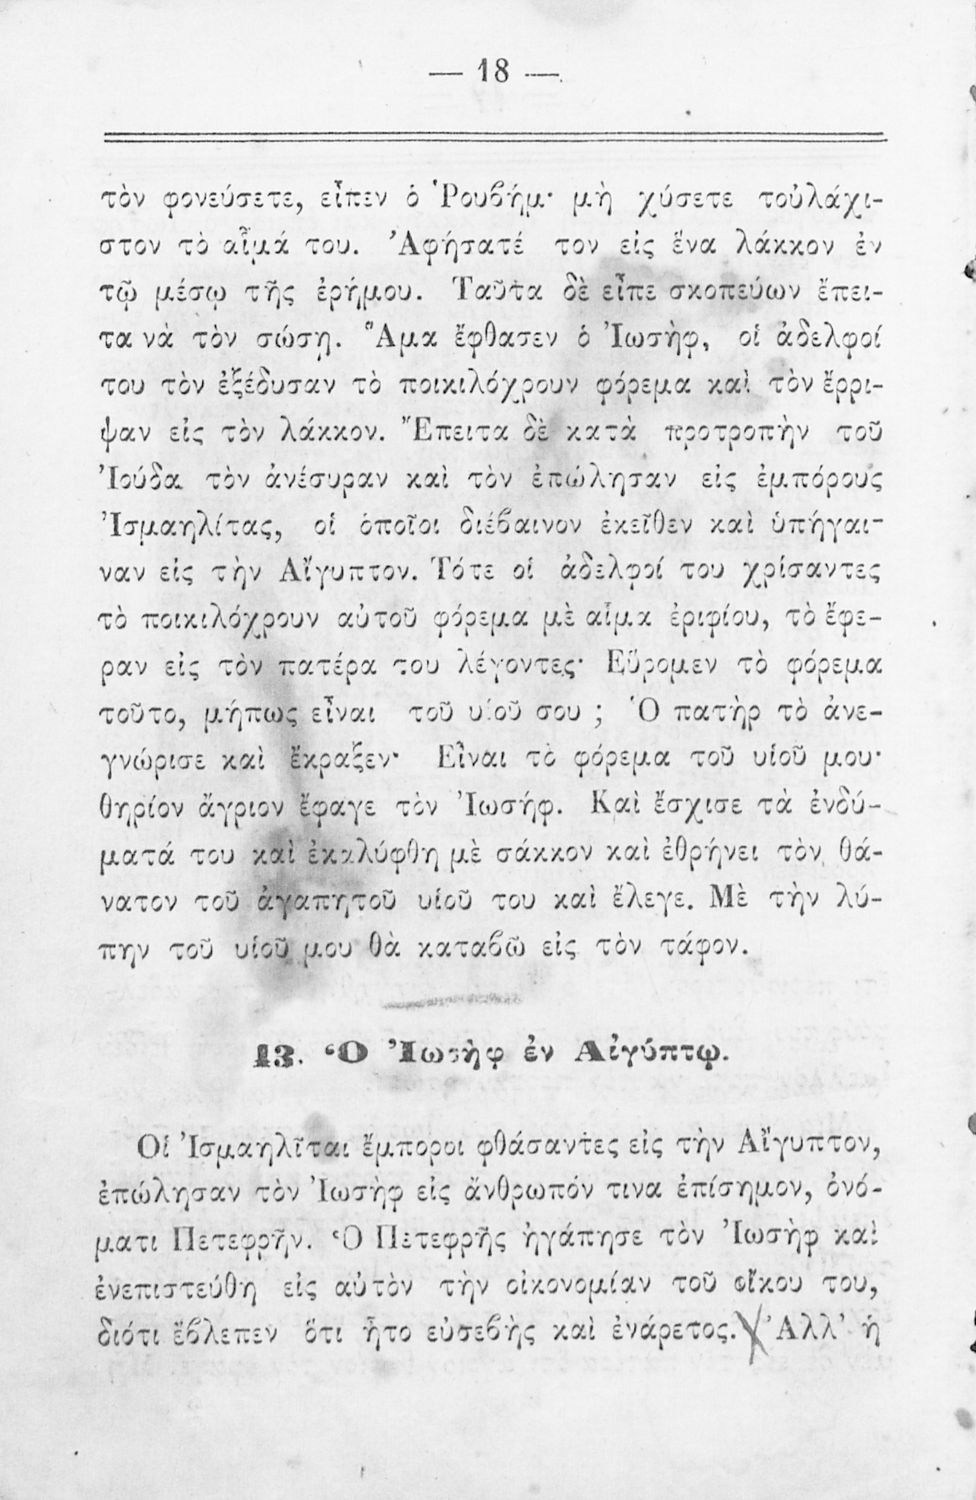 — 18 —
τὸν φονεύσετε, εἶπεν ὁ Ῥουβήμ· μὴ χύσετε τοὐλάχι-
στον τὸ αἷμά του. Ἀφήσατέ τον εἰς ἕνα λάκκον ἐν
τῷ μέσῳ τῆς ἐρήμου. Ταῦτα δὲ εἶπε σκοπεύων ἔπει-
τα νὰ τὸν σώσῃ. Ἅμα ἔφθασεν ὁ Ἰωσὴφ, οἱ ἀδελφοί
του τὸν ἐξέδυσαν τὸ ποικιλόχρουν φόρεμα καὶ τὸν ἔρρι-
ψαν εἰς τὸν λάκκον. Ἔπειτα δὲ κατὰ προτροπὴν τοῦ
Ἰούδα τὸν ἀνέσυραν καὶ τὸν ἐπώλησαν εἰς ἐμπόρους
Ἰσμαηλίτας, οἱ ὁποῖοι διέβαινον ἐκεῖθεν καὶ ὑπήγαι-
ναν εἰς τὴν Αἴγυπτον. Τότε οἱ ἀδελφοί του χρίσαντες
τὸ ποικιλόχρουν αὐτοῦ φόρεμα μὲ αἷμα ἐριφίου, τὸ ἔφε-
ραν εἰς τὸν πατέρα του λέγοντες· Εὕρομεν τὸ φόρεμα
τοῦτο, μήπως εἶναι τοῦ υἱοῦ σου ; Ὁ πατὴρ τὸ ἀνε-
γνώρισε καὶ ἔκραξεν· Εἶναι τὸ φόρεμα τοῦ υἱοῦ μου·
θηρίον ἄγριον ἔφαγε τὸν Ἰωσήφ. Καὶ ἔσχισε τὰ ἐνδύ-
ματά του καὶ ἐκαλύφθη μὲ σάκκον καὶ ἐθρήνει τὸν θά-
νατον τοῦ ἀγαπητοῦ υἱοῦ του καὶ ἔλεγε. Μὲ τὴν λύ-
πην τοῦ υἱοῦ μου θὰ καταβῶ εἰς τὸν τάφον.
13. Ὁ Ἰωσὴφ ἐν Αἰγύπτῳ.
Οἱ Ἰσμαηλῖται ἔμποροι φθάσαντες εἰς τὴν Αἴγυπτον,
ἐπώλησαν τὸν Ἰωσὴφ εἰς ἄνθρωπόν τινα ἐπίσημον, ὀνό-
ματι Πετεφρῆν. Ὁ Πετεφρῆς ἠγάπησε τὸν Ἰωσὴφ καὶ
ἐνεπιστεύθη εἰς αὐτὸν τὴν οἰκονομίαν τοῦ οἴκου του,
διότι ἔβλεπεν ὅτι ἦτο εὐσεβὴς καὶ ἐνάρετος. Ἀλλ' ἡ